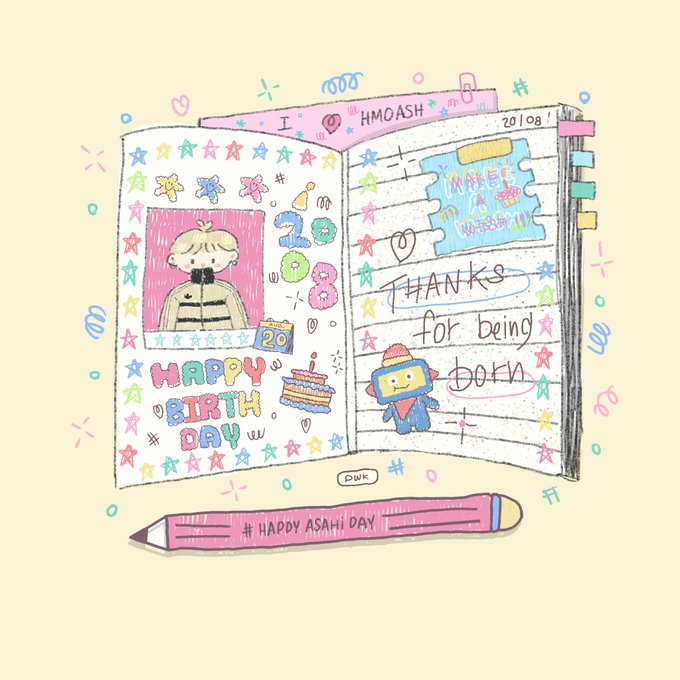 I HMOASH
20/08!
20
08
AUG.
20
HAPPY
BIRTH
DAY
MAKE
A
WISH
THANKS
for being
born
DWK
# HAPPY ASAHI DAY